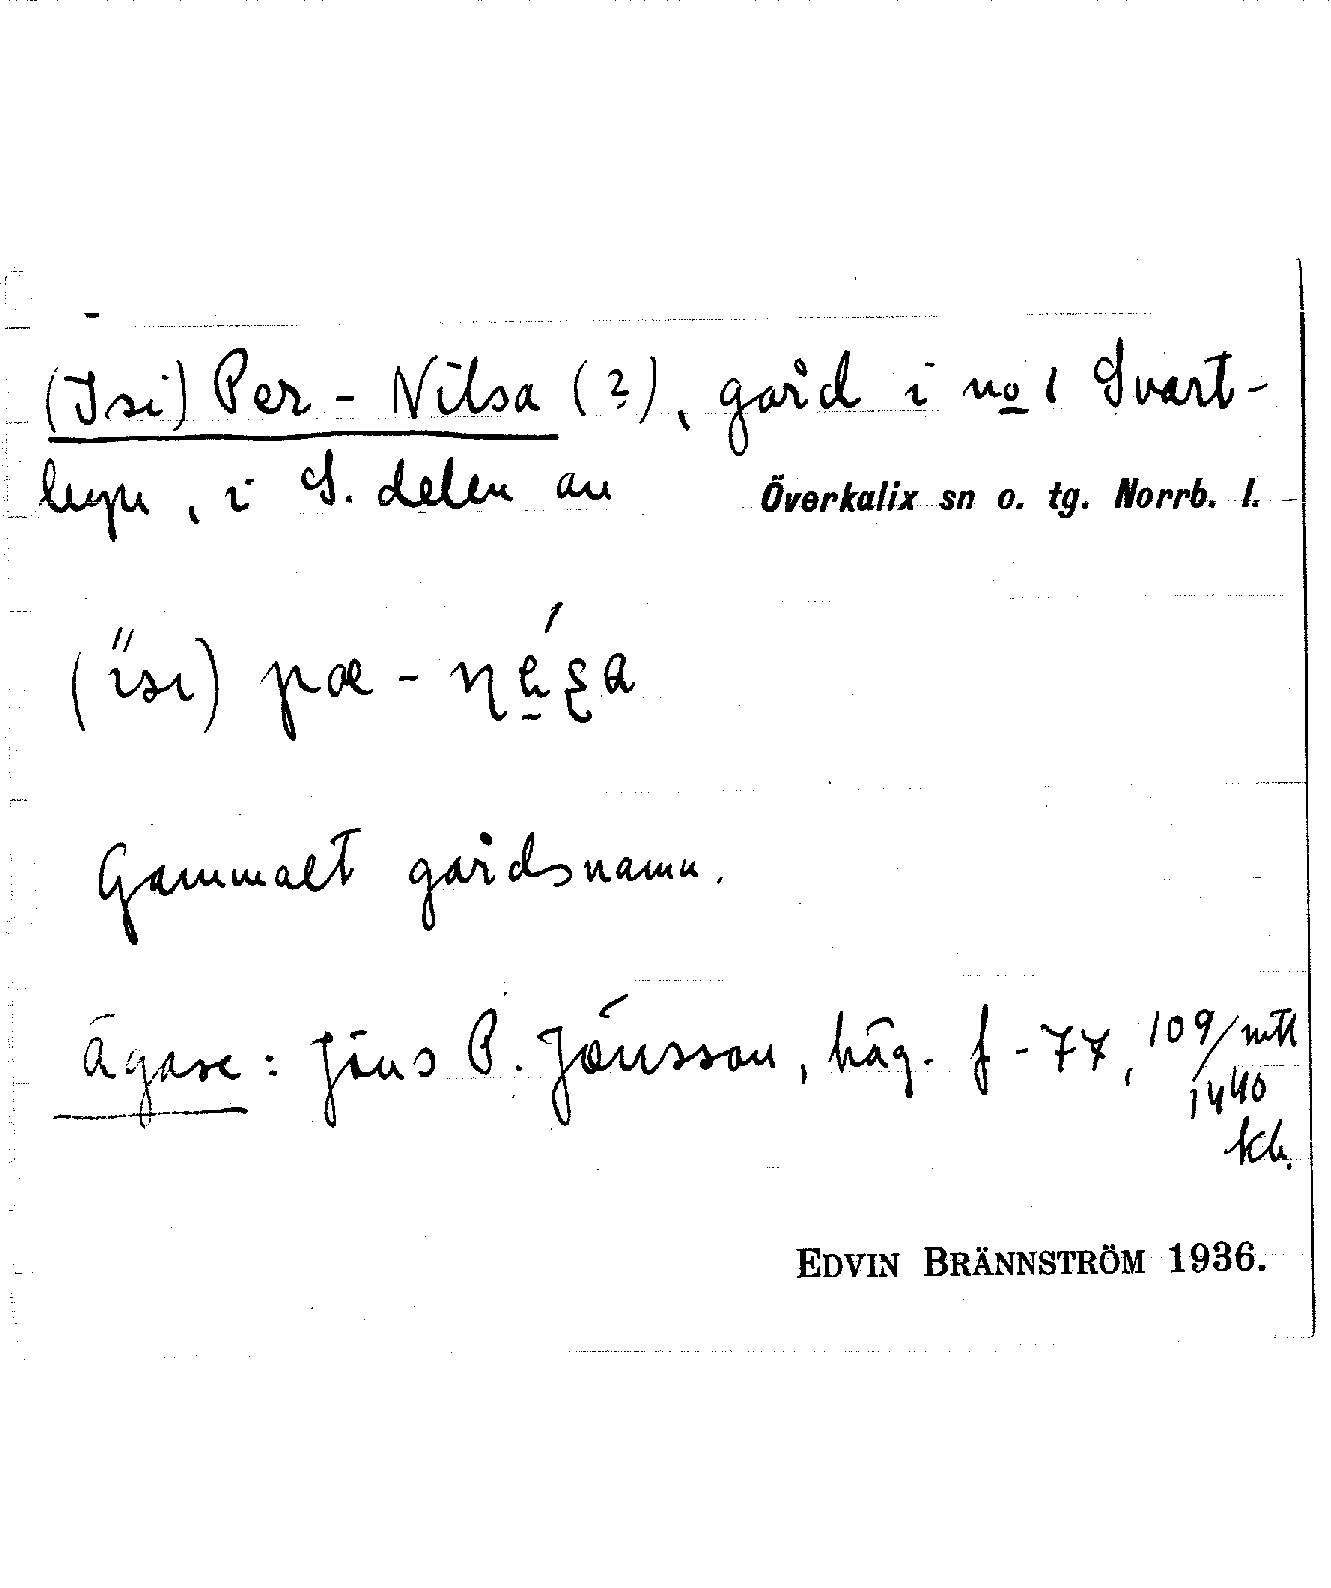 (Isi) Per - Nilsa (?), gård i no 1 Svart-
byn, i S. delen av Överkalix sn o. tg. Norrb. l.
(ïsı) pæ -
Gammalt gårdsnamn.
Ägare: Jöns P. Jönsson, häg. f -77, 109/mtl
1440
kb.
EDVIN BRÄNNSTRÖM 1936.